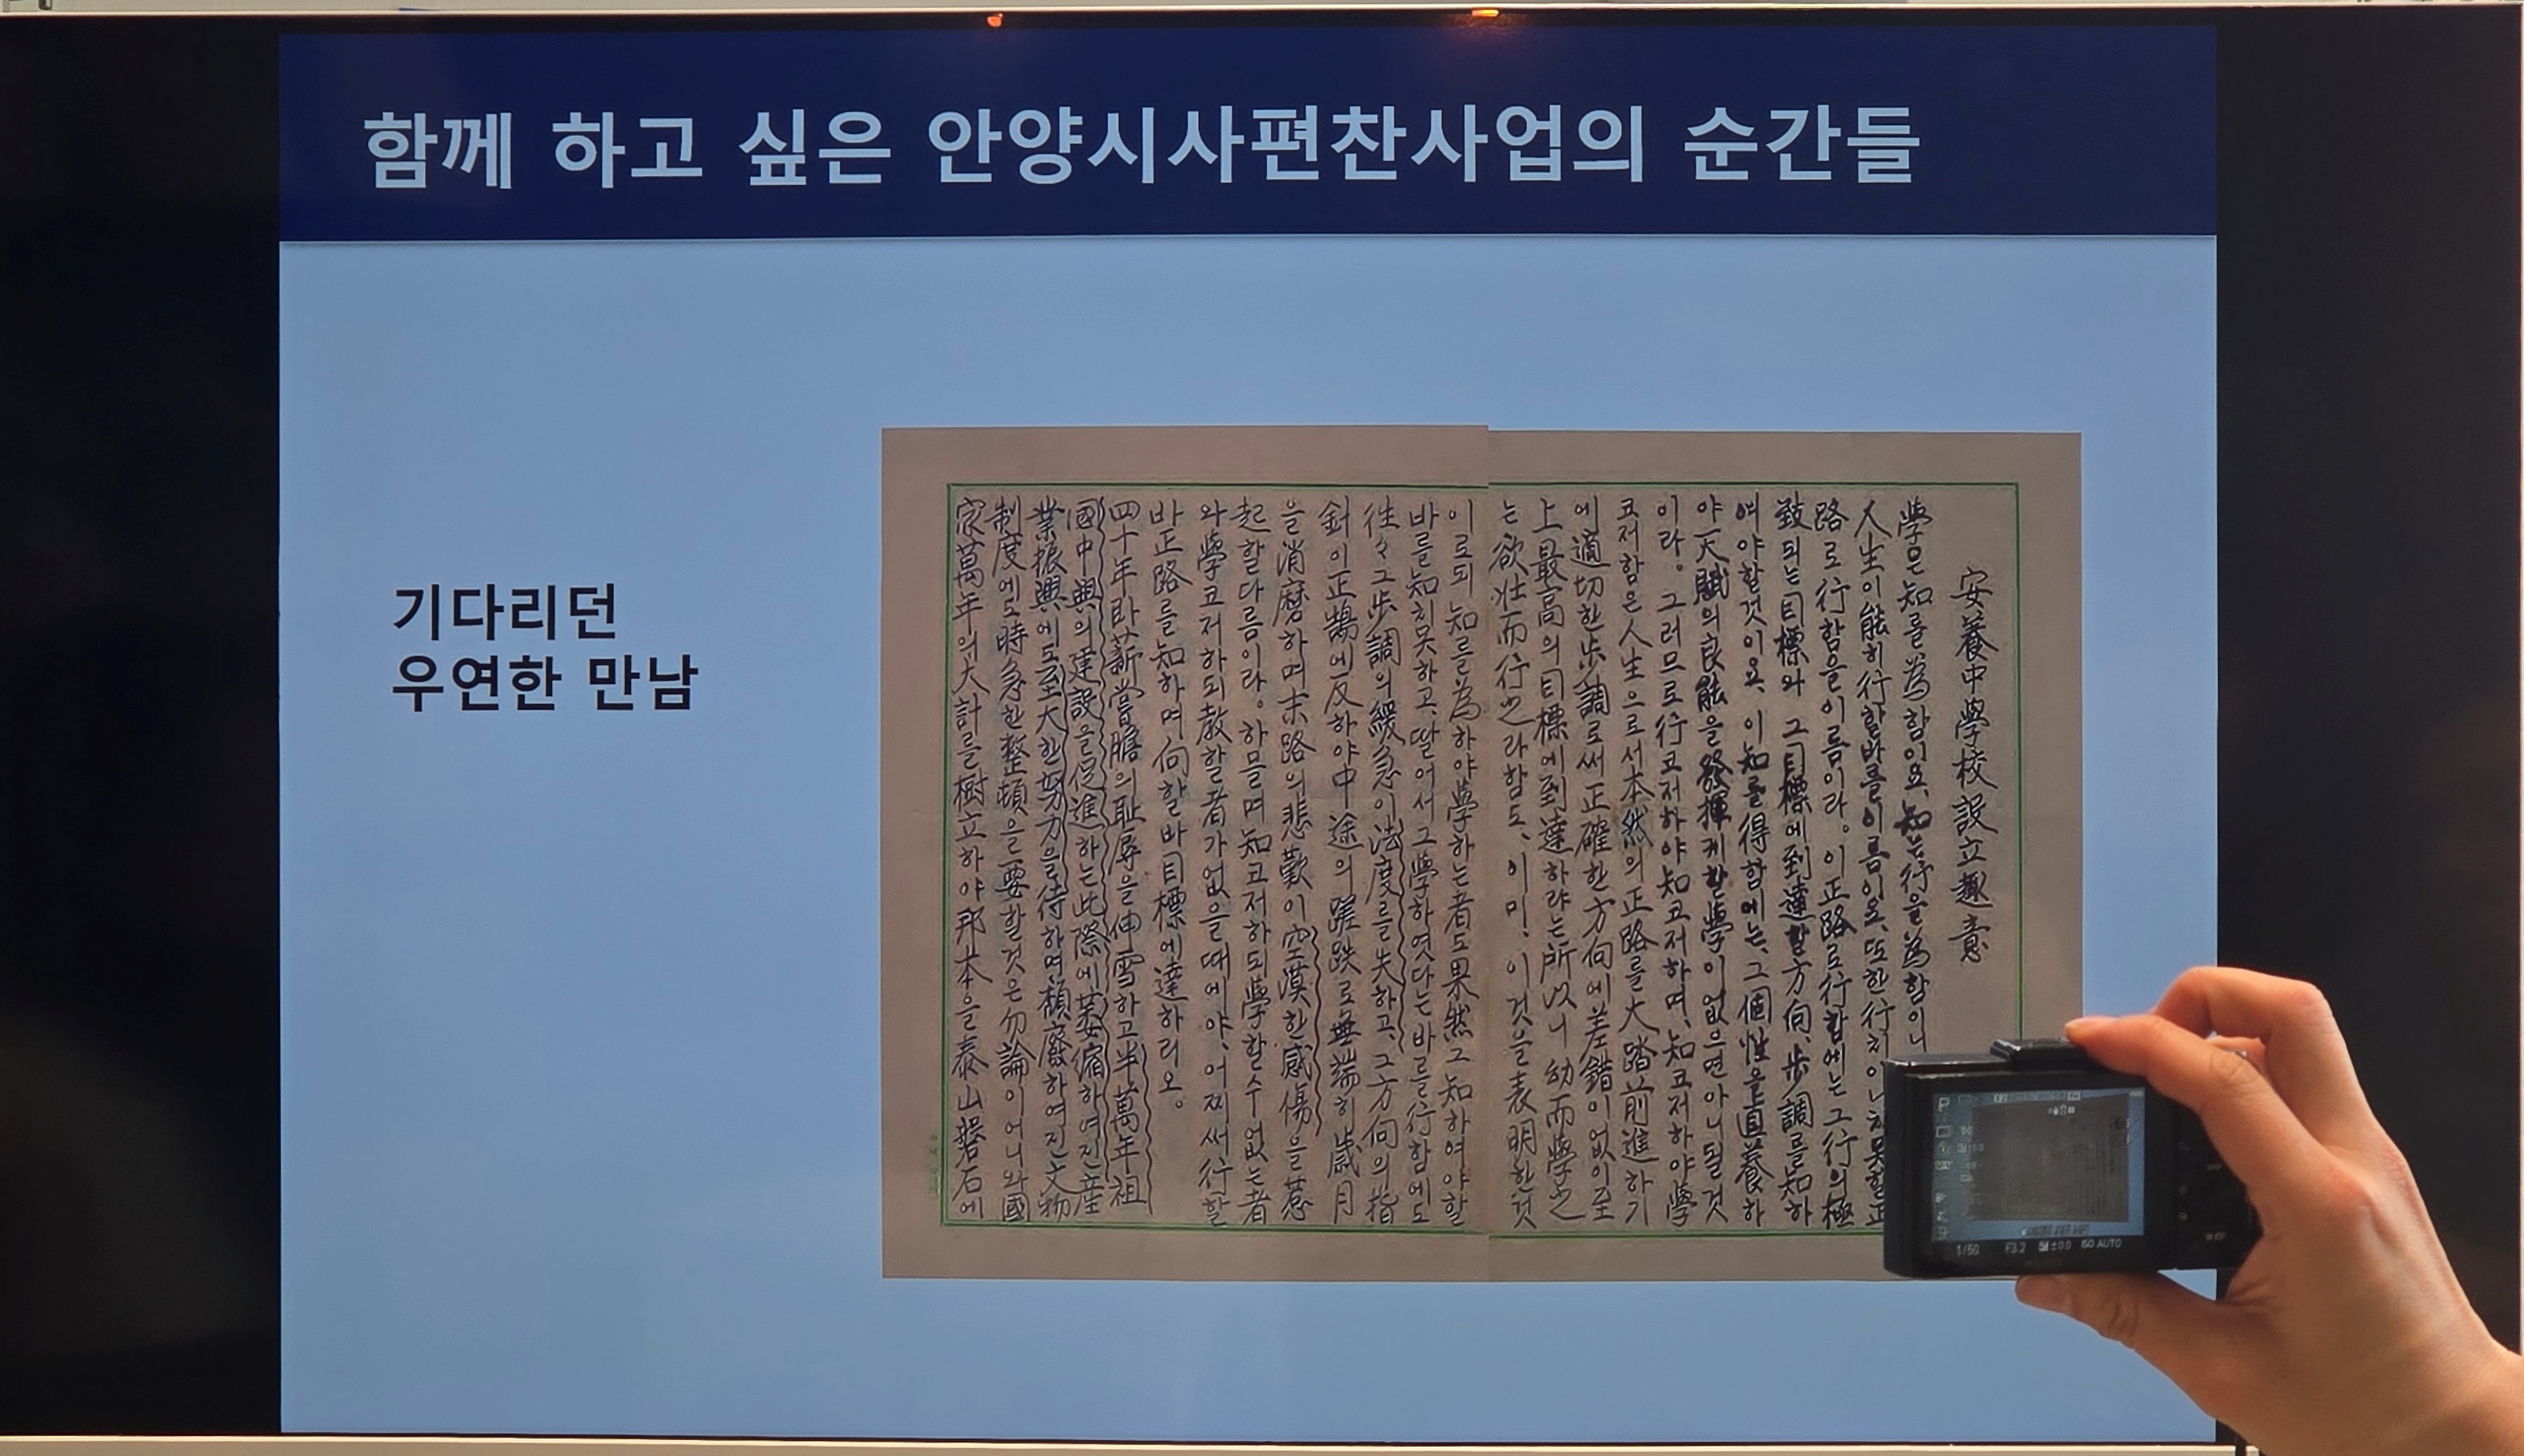 함께 하고 싶은 안양시사편찬사업의 순간들
기다리던
우연한 만남
安養中學校設立趣意
學은 知를 為함이요, 知는 行을 為함이니
人生이 能히 行할바를 이름이오, 또한 行치 아니치 못할 正
路로 行함을 이름이라。이 正路로 行함에는 그 行의 極
致되는 目標와 그 目標에 到達할 方向, 步調를 知하
여야 할것이오, 이 知를 得함에는, 그 個性을 直養하
야 天賦의 良能을 發揮케할 學이 없으면 아니될것
이라。그러므로 行코저하야 知코저하며, 知코저하야 學
코저함은 人生으로서 本然의 正路를 大踏前進하기
에 適切한 步調로써 正確한 方向에 差錯이 없이 至
上最高의 目標에 到達하랴는 所以니 幼而學之
는 欲壯而行之라함도, 이미, 이것을 表明한것
이로되 知를 為하야 學하는 者도 果然 그 知하여야할
바를 知치못하고, 딸어서 그 學하엿다는 바를 行함에도
往々 그 步調의 緩急이 法度를 失하고, 그 方向의 指
針이 正鵠에 反하야 中途의 蹉跌로 無端히 歲月
을 消磨하며 末路의 悲歎이 空漠한 感傷을 惹
起할다름이라。하믈며 知코저하되 學할수없는者
와 學코저하되 敎할者가 없을때에야, 어찌써 行할
바 正路를 知하며 向할바 目標에 達하리오。
四十年 臥薪嘗膽의 恥辱을 伸雪하고 半萬年 祖
國中興의 建設을 促進하는 此際에 萎縮하여진 産
業振興에도 至大한 努力을 待하며 頹廢하여진 文物
制度에도 時急한 整頓을 要할것은 勿論이어니와 國
家萬年의 大計를 樹立하야 邦本을 泰山磐石에
P
1/50 F3.2 ±0.0 ISO AUTO